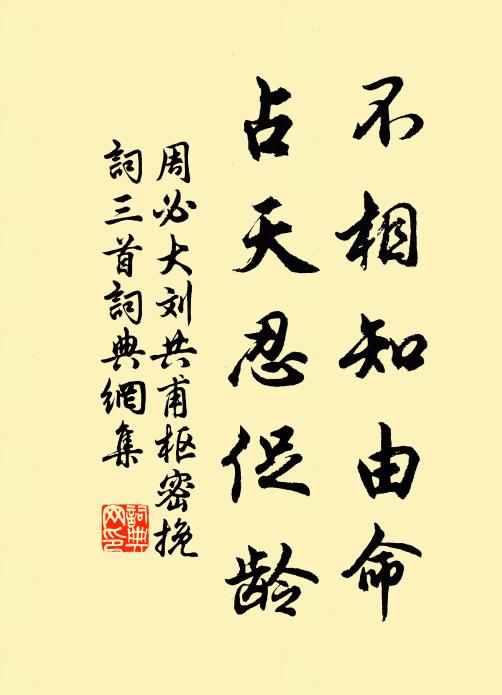 不相知由命
占天忍促龄
周必大刘共甫枢密挽
詞三首詞典網集
詞典网印